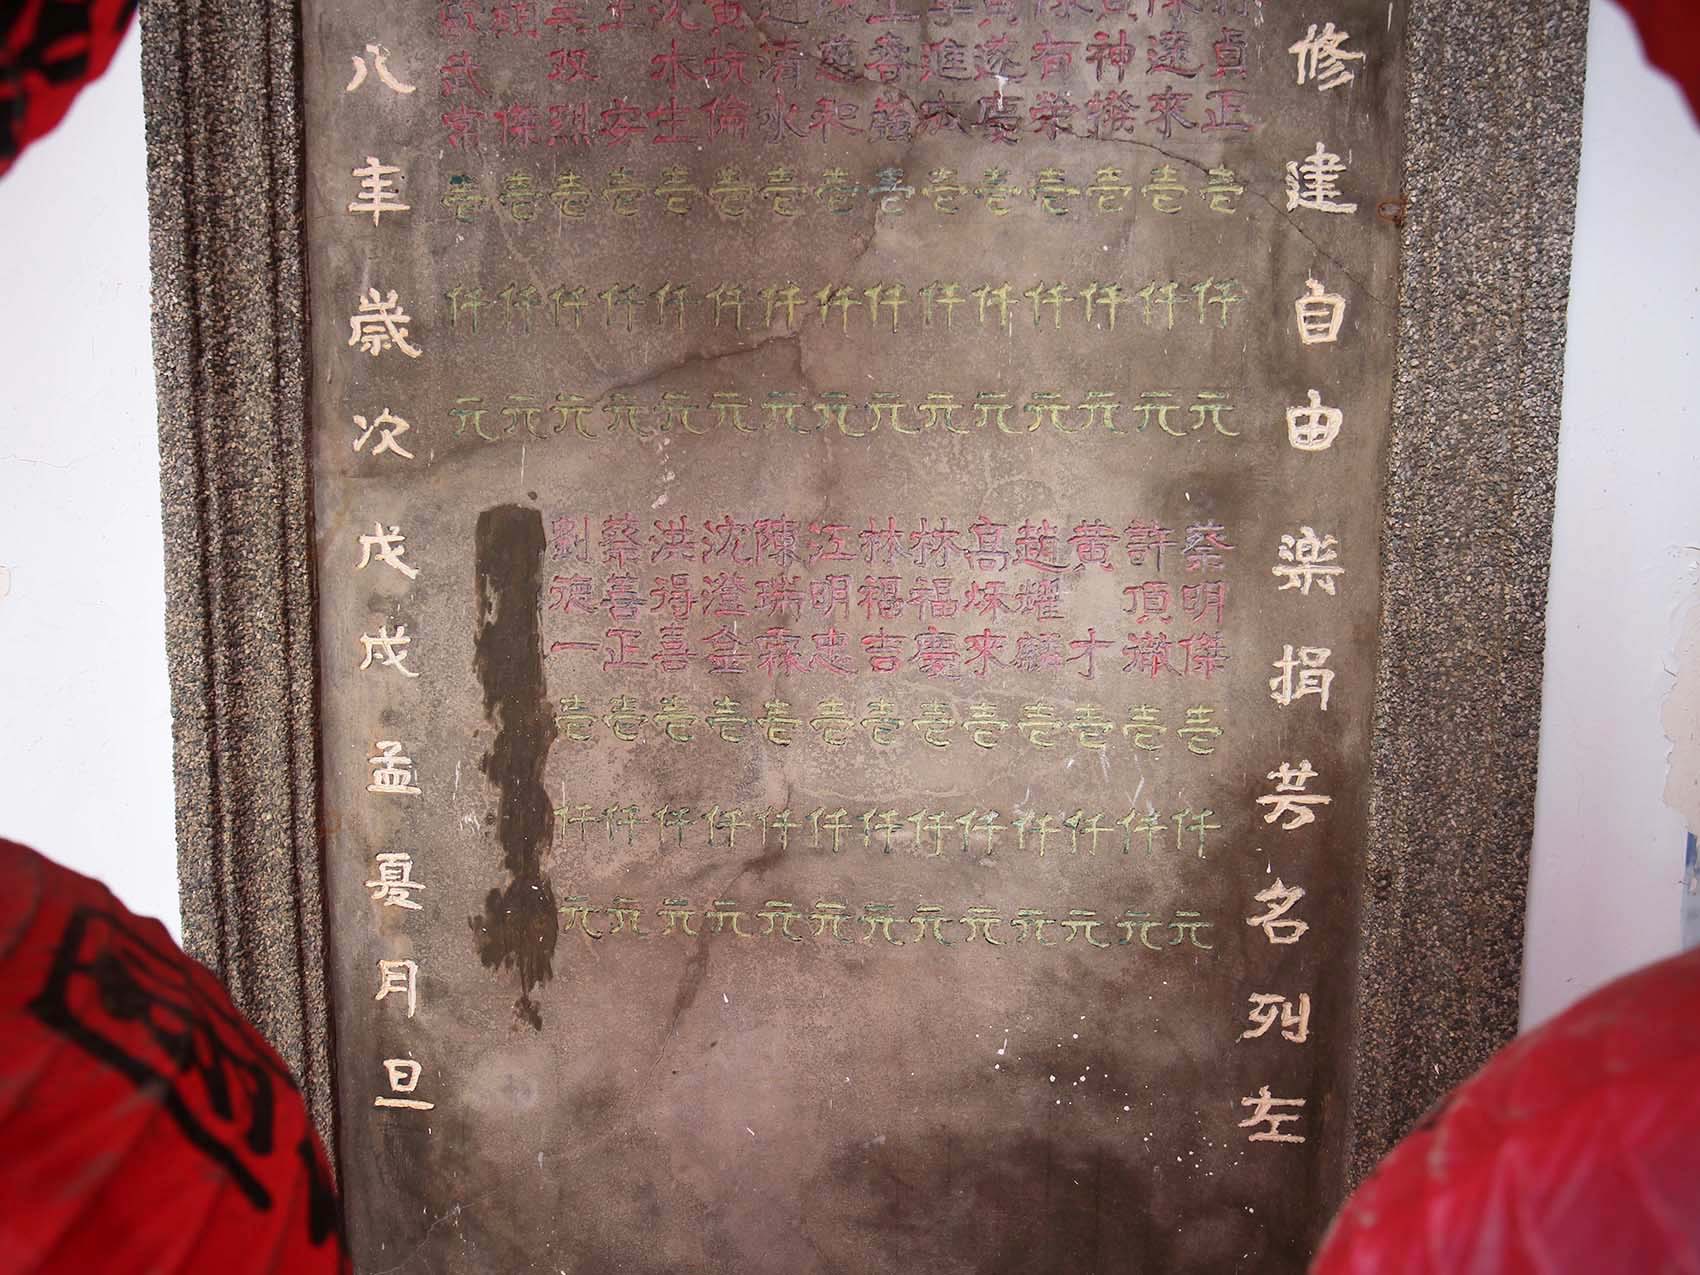 修建自由楽捐芳名列左
貞正壹仟元
來壹仟元
神撥壹仟元
有榮壹仟元
遂慶壹仟元
進壹仟元
春壹仟元
慈和壹仟元
清水壹仟元
黃坑倫壹仟元
沈水生壹仟元
王安壹仟元
政烈壹仟元
傑壹仟元
武常壹仟元
蔡明傑壹仟元
許頂徽壹仟元
黃才壹仟元
趙耀麟壹仟元
高來壹仟元
林福慶壹仟元
林福吉壹仟元
江明忠壹仟元
陳瑞霖壹仟元
沈澄金壹仟元
洪得喜壹仟元
蔡善正壹仟元
劉德一壹仟元
八年歲次戊戌孟夏月旦